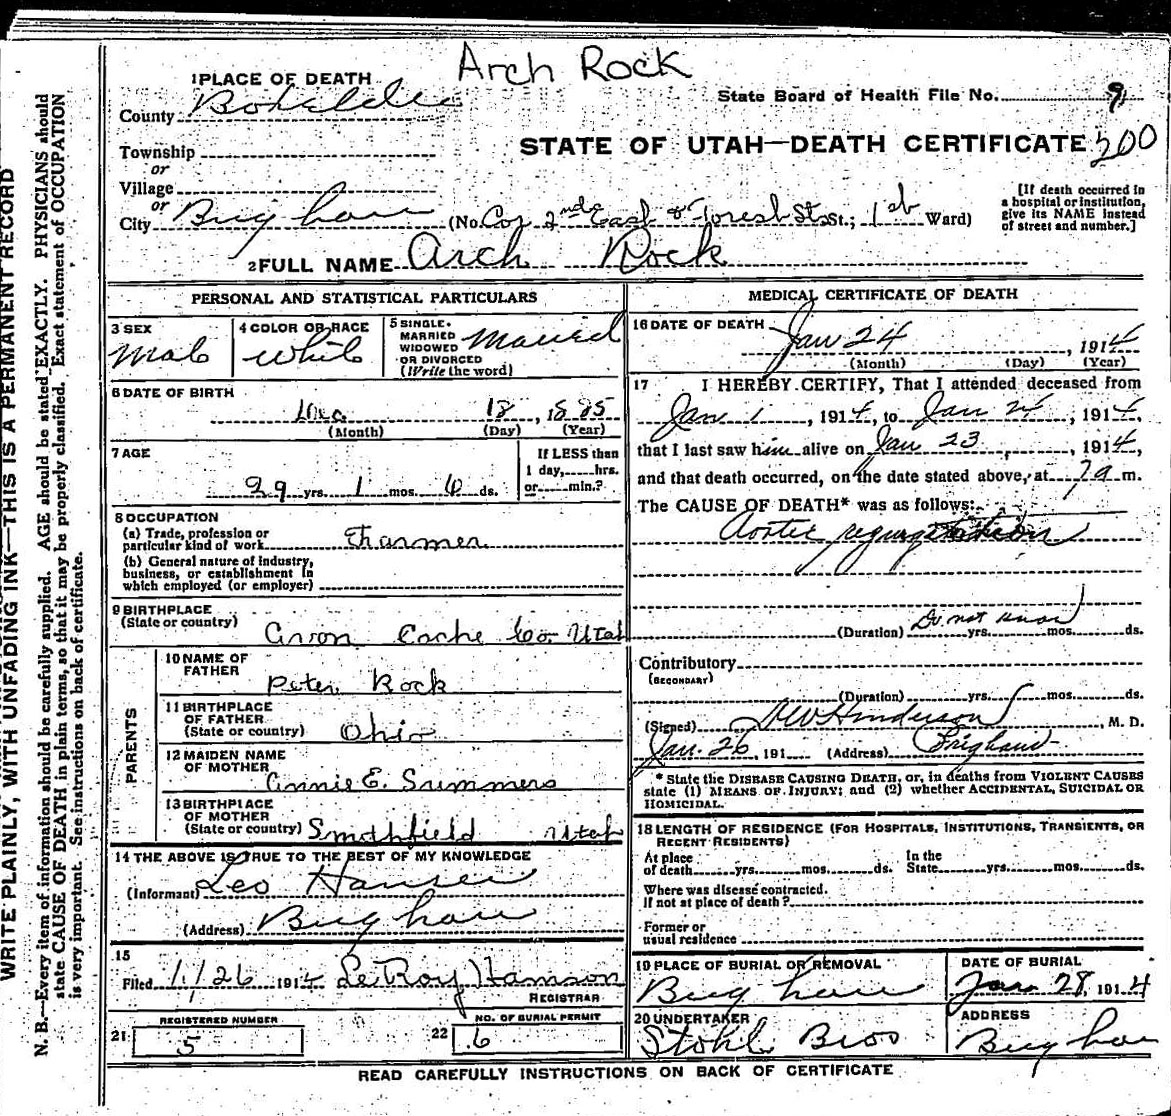 Arch Rock
1 PLACE OF DEATH
State Board of Health File No. 9
County
STATE OF UTAH—DEATH CERTIFICATE 200
Township
or
Village
or
City Brigham (No. Cor 2nd East & Forest Sts St.; 1st Ward)
[If death occurred in a hospital or institution, give its NAME instead of street and number.]
2 FULL NAME Arch Rock
PERSONAL AND STATISTICAL PARTICULARS
3 SEX
Male
4 COLOR OR RACE
White
5 SINGLE. MARRIED WIDOWED OR DIVORCED (Write the word)
Married
6 DATE OF BIRTH
Dec. 18, 1885
(Month) (Day) (Year)
7 AGE
29 yrs. 1 mos. 6 ds.
If LESS than
1 day,......hrs.
or......min.?
8 OCCUPATION
(a) Trade, profession or
particular kind of work Farmer
(b) General nature of industry,
business, or establishment in
which employed (or employer)
9 BIRTHPLACE
(State or country)
Avon Cache Co. Utah
PARENTS
10 NAME OF FATHER
Peter Rock
11 BIRTHPLACE OF FATHER
(State or country) Ohio
12 MAIDEN NAME OF MOTHER
Annie E. Summers
13 BIRTHPLACE OF MOTHER
(State or country) Smithfield Utah
14 THE ABOVE IS TRUE TO THE BEST OF MY KNOWLEDGE
(Informant) Leo Hansen
(Address) Brigham
15
Filed 1/26 1914 LeRoy Hamson
REGISTRAR
21 REGISTERED NUMBER
5
22 NO. OF BURIAL PERMIT
6
MEDICAL CERTIFICATE OF DEATH
16 DATE OF DEATH
Jan 24, 1914
(Month) (Day) (Year)
17 I HEREBY CERTIFY, That I attended deceased from
Jan 1, 1914, to Jan 24, 1914,
that I last saw him alive on Jan 23, 1914,
and that death occurred, on the date stated above, at 7 a m.
The CAUSE OF DEATH* was as follows:
Aortic regurgitation
(Duration) Do not know yrs. mos. ds.
Contributory
(SECONDARY)
(Duration) yrs. mos. ds.
(Signed) Henderson, M. D.
Jan. 26, 191 (Address) Brigham
* State the DISEASE CAUSING DEATH, or, in deaths from VIOLENT CAUSES
state (1) MEANS OF INJURY; and (2) whether ACCIDENTAL, SUICIDAL OR
HOMICIDAL.
18 LENGTH OF RESIDENCE (FOR HOSPITALS, INSTITUTIONS, TRANSIENTS, OR
RECENT RESIDENTS)
At place of death yrs. mos. ds. In the State yrs. mos. ds.
Where was disease contracted.
If not at place of death?
Former or
usual residence
19 PLACE OF BURIAL OR REMOVAL
Brigham
DATE OF BURIAL
Jan 28, 1914
20 UNDERTAKER
Stohl Bros
ADDRESS
Brigham
READ CAREFULLY INSTRUCTIONS ON BACK OF CERTIFICATE
WRITE PLAINLY, WITH UNFADING INK—THIS IS A PERMANENT RECORD
N. B.—Every item of information should be carefully supplied. AGE should be stated EXACTLY. PHYSICIANS should
state CAUSE OF DEATH in plain terms, so that it may be properly classified. Exact statement of OCCUPATION
is very important. See instructions on back of certificate.